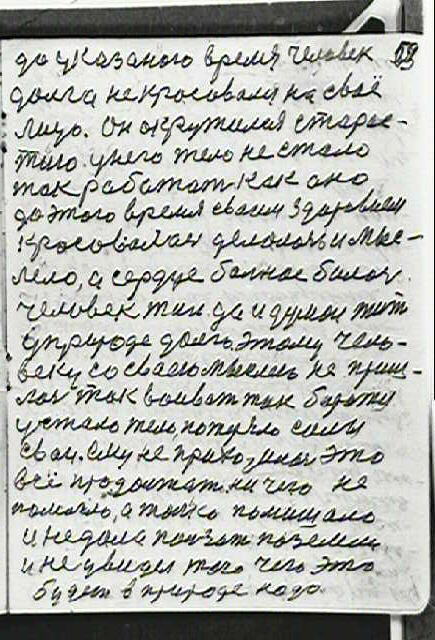 до указаного время человек
долга некросовался на своё
лицо. Он окружился старос-
тию. у него тело не стало
так работат как оно
до этого время своим здоровием
кросовалася делолось и мыс-
лело, а сердце болное билось.
человек жил да и думал жит
у природе долго. Этому чело-
веку со своею мыслею не приш-
лос так воеват так боротся
устало тело, потеряло силы
свои. Ему не приходилос это
всё продолжат. ничего не
помогло, а толко помишало
и недало ползат по земли
и не увидел того чего это
будит в природе надо.